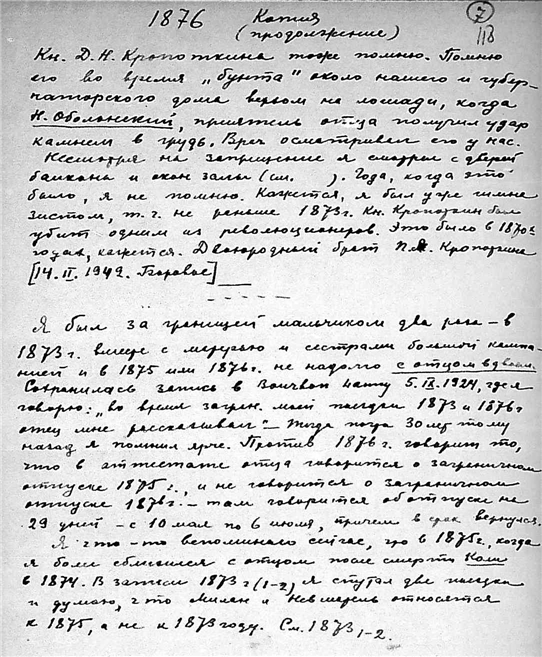 1876 Копия 7
(продолжение) 118
Кн. Д. Н. Кропоткина тоже помню. Помню
его во время „бунта" около нашего и губер-
наторского дома верхом на лошади, когда
Н. Оболенский, приятель отца получил удар
камнем в грудь. Врач осматривал его у нас.
Несмотря на запрещение я смотрел с дверей
балкона и окон залы (см. ). Года, когда это
было, я не помню. Кажется, я был уже гимна
зистом, т. е. не раньше 1873 г. Кн. Кропоткин был
убит одним из революционеров. Это было в 1870х
годах, кажется. Двоюродный брат П. А. Кропоткина
[14. II. 1942. Боровое]
Я был за границей мальчиком два раза – в
1873 г. вместе с матерью и сестрами большой компа-
нией и в 1875 или 1876 г. не надолго с отцом вдвоем.
Сохранилась запись в 5. IX. 1924, где я
говорю: „во время загран. моей поездки 1873 и 1876 г
отец мне рассказывал" – Тогда тогда 30 лет тому
назад я помнил ярче. Против 1876 г. говорит то,
что в аттестате отца говорится о заграничном
отпуске 1875 г., и не говорится о заграничном
отпуске 1876 г. – там говорится об отпуске на
29 дней – с 10 мая по 6 июля, причем в срок вернулся.
Я что-то вспоминаю сейчас, что в 1875 г. когда
я более сблизился с отцом после смерти Коли
в 1874. В записи 1873 г (1-2) я спутал две поездки
и думаю, что Милан и относятся
к 1875, а не к 1873 году. См. 1873 1-2.